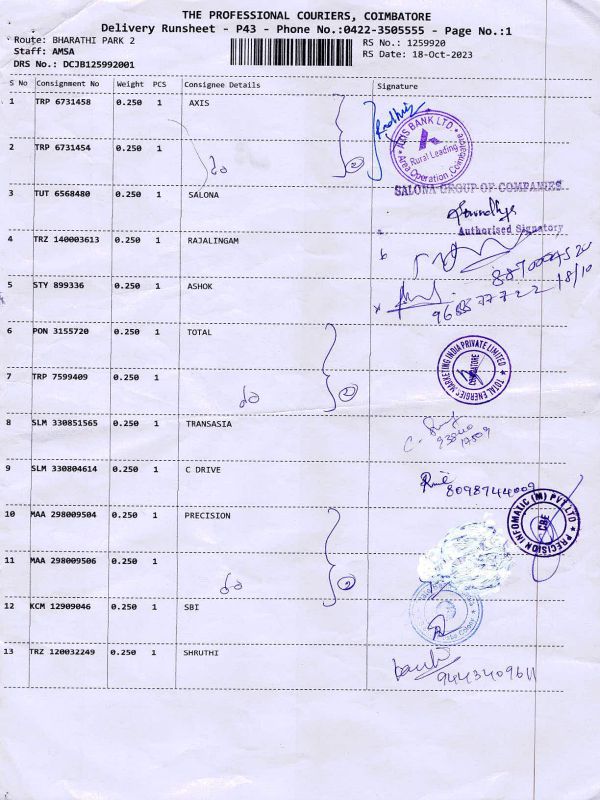 THE PROFESSIONAL COURIERS, COIMBATORE
Delivery Runsheet - P43 - Phone No.:0422-3505555 - Page No.:1
Route: BHARATHI PARK 2 RS No.: 1259920
Staff: AMSA RS Date: 18-Oct-2023
DRS No.: DCJB125992001
S No Consignment No Weight PCS Consignee Details Signature
1 TRP 6731458 0.250 1 AXIS
AXIS BANK LTD.
Rural Leading
Area Operation, Coimbatore
2 TRP 6731454 0.250 1 do 2
3 TUT 6568480 0.250 1 SALONA SALONA GROUP OF COMPANIES
Authorised Signatory
4 TRZ 140003613 0.250 1 RAJALINGAM
18/10
5 STY 899336 0.250 1 ASHOK
6 PON 3155720 0.250 1 TOTAL
TOTAL ENERGIES MARKETING INDIA PRIVATE LIMITED
COIMBATORE
7 TRP 7599409 0.250 1 do 2
8 SLM 330851565 0.250 1 TRANSASIA
9 SLM 330804614 0.250 1 C DRIVE 8098744009
10 MAA 298009504 0.250 1 PRECISION
PRECISION INFOMATIC (M) PVT LTD
CBE
11 MAA 298009506 0.250 1 do 2
12 KCM 12909046 0.250 1 SBI
13 TRZ 120032249 0.250 1 SHRUTHI
9443409611